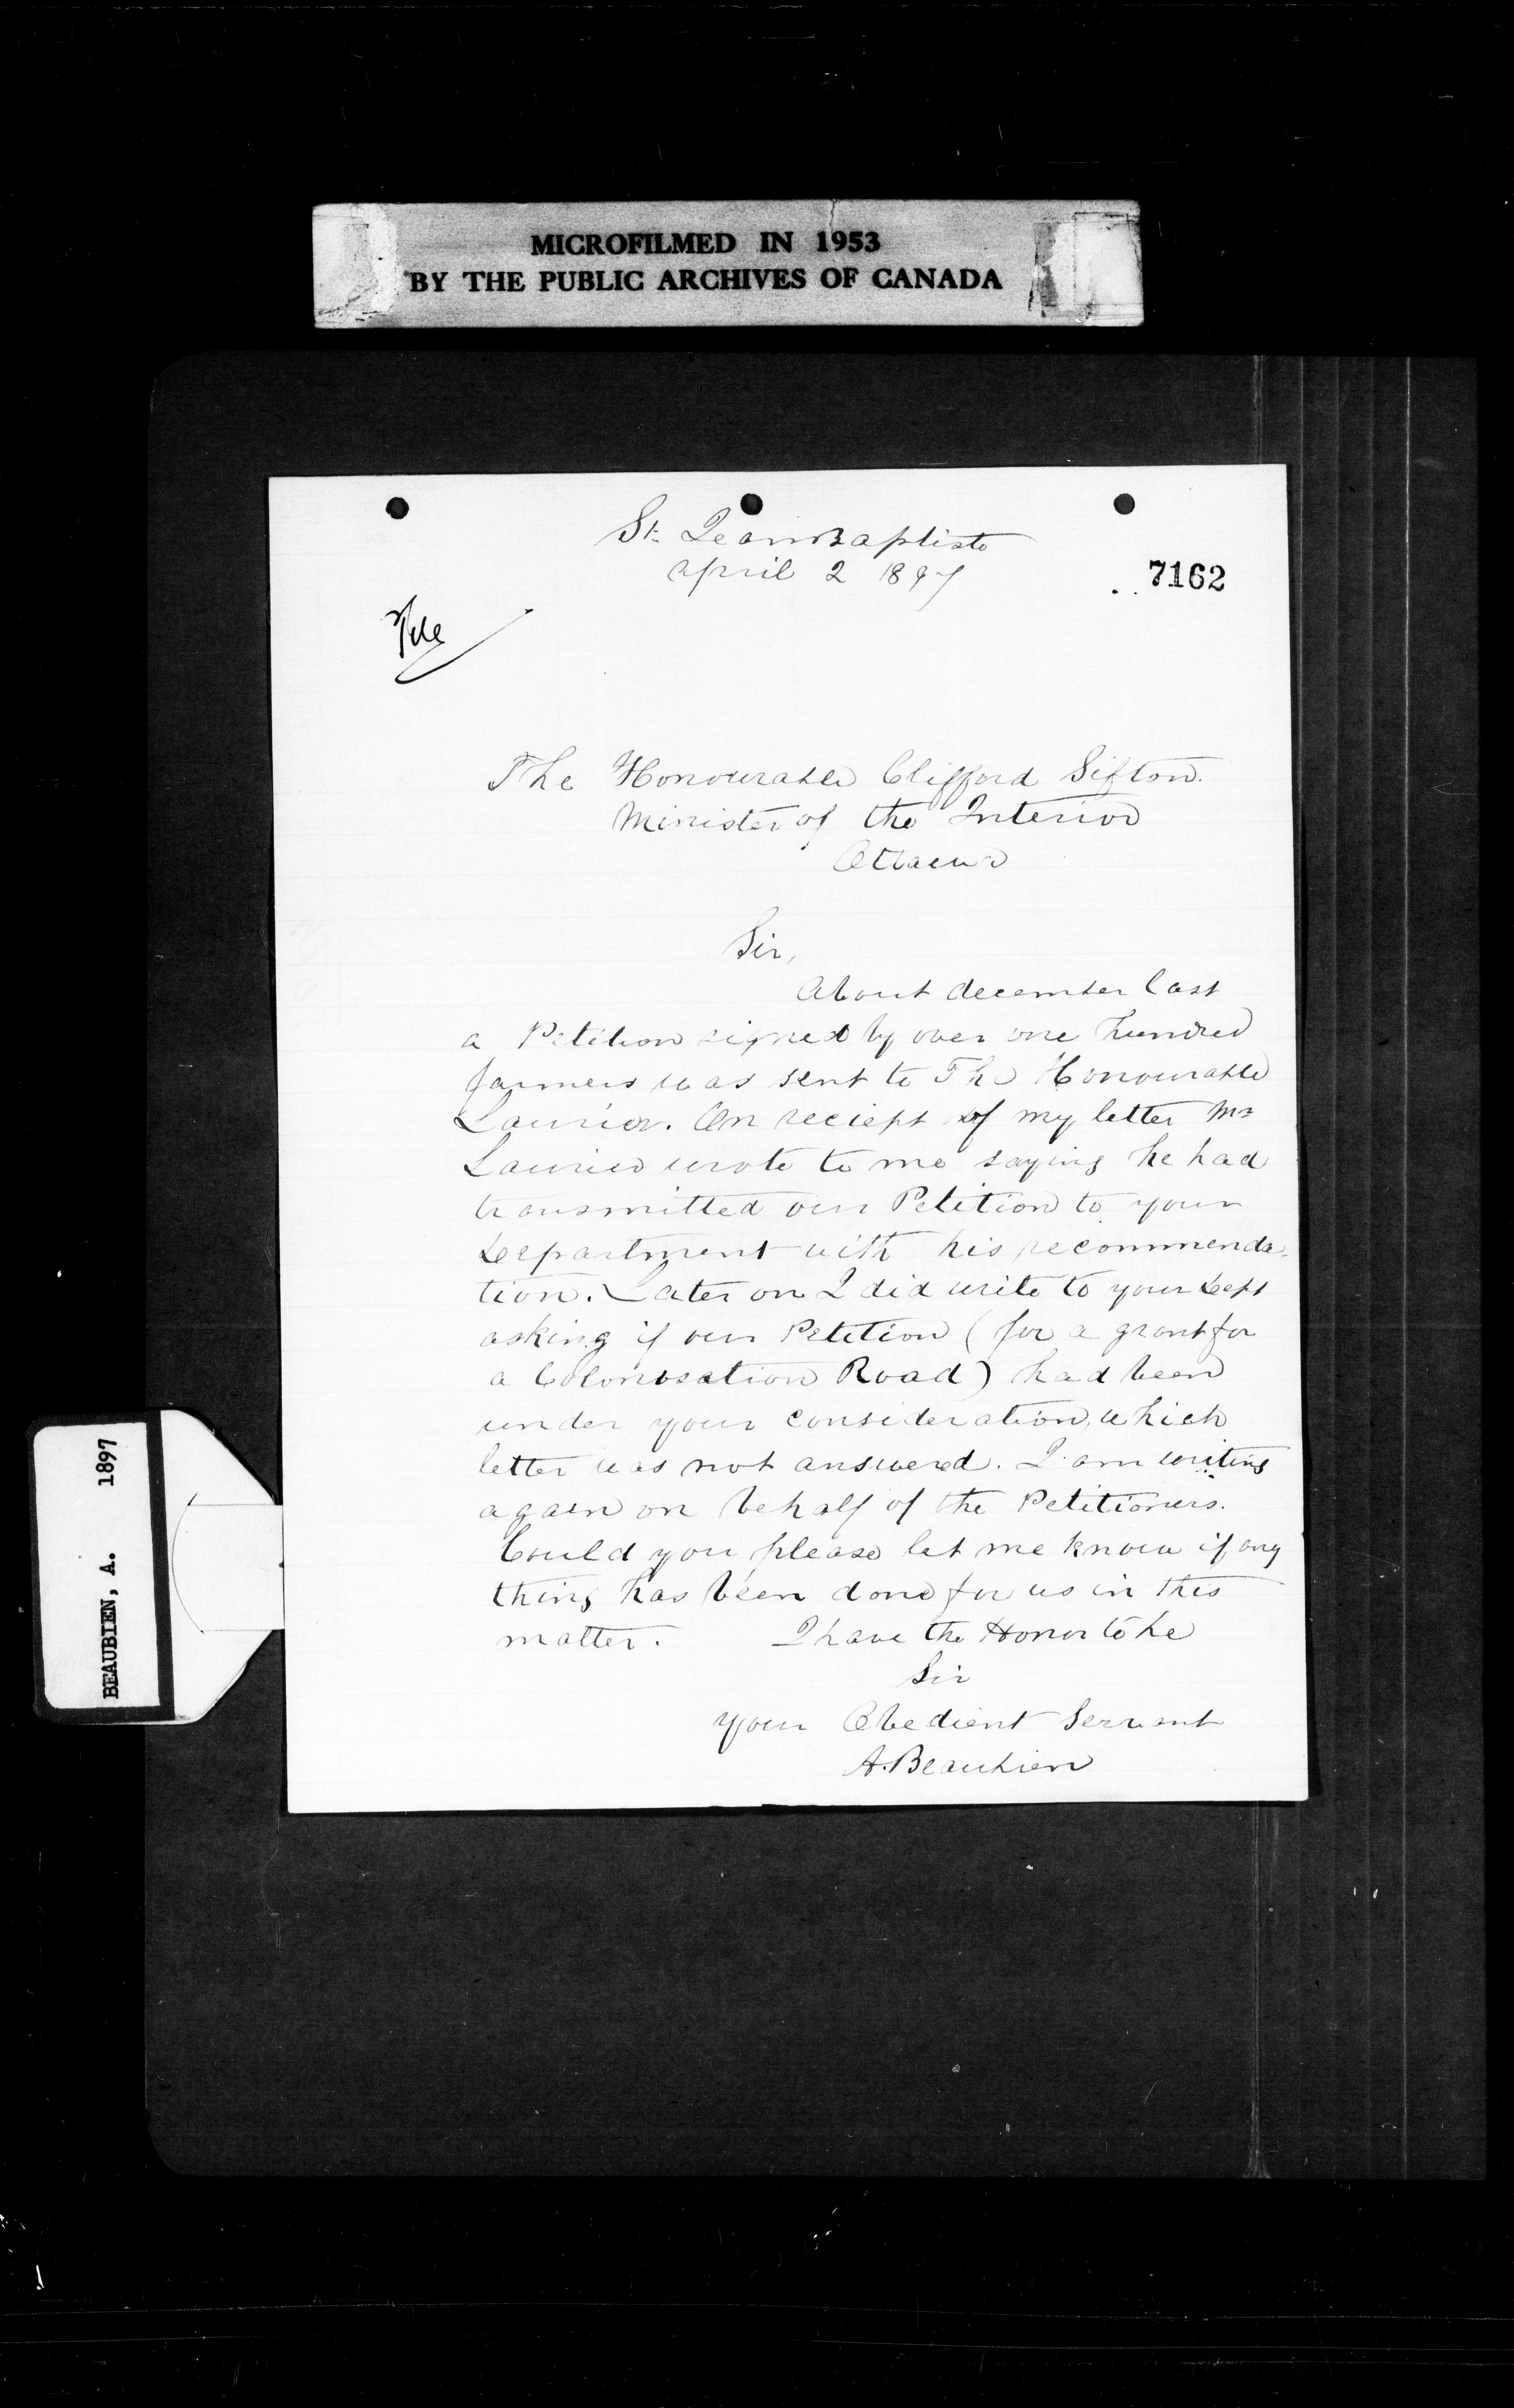 MICROFILMED IN 1953
BY THE PUBLIC ARCHIVES OF CANADA
St. Jean Baptiste
april 2 1897
7162
File
The Honourable Clifford Sifton.
Minister of the Interior
Ottawa
Sir,
About december last
a Petition signed by over one hundred
farmers was sent to The Honourable
Laurier. On reciept of my letter Mr
Laurier wrote to me saying he had
transmitted our Petition to your
Department with his recommenda-
tion. Later on I did write to your Dept
asking if our Petition (for a grant for
a Colonosation Road) had been
under your consideration, which
letter was not answered. I am writing
again on behalf of the Petitioners.
Could you please let me know if any
thing has been done for us in this
matter. I have the Honor to be
Sir
your Obedient Servant
A. Beaubien
BEAUBIEN, A. 1897